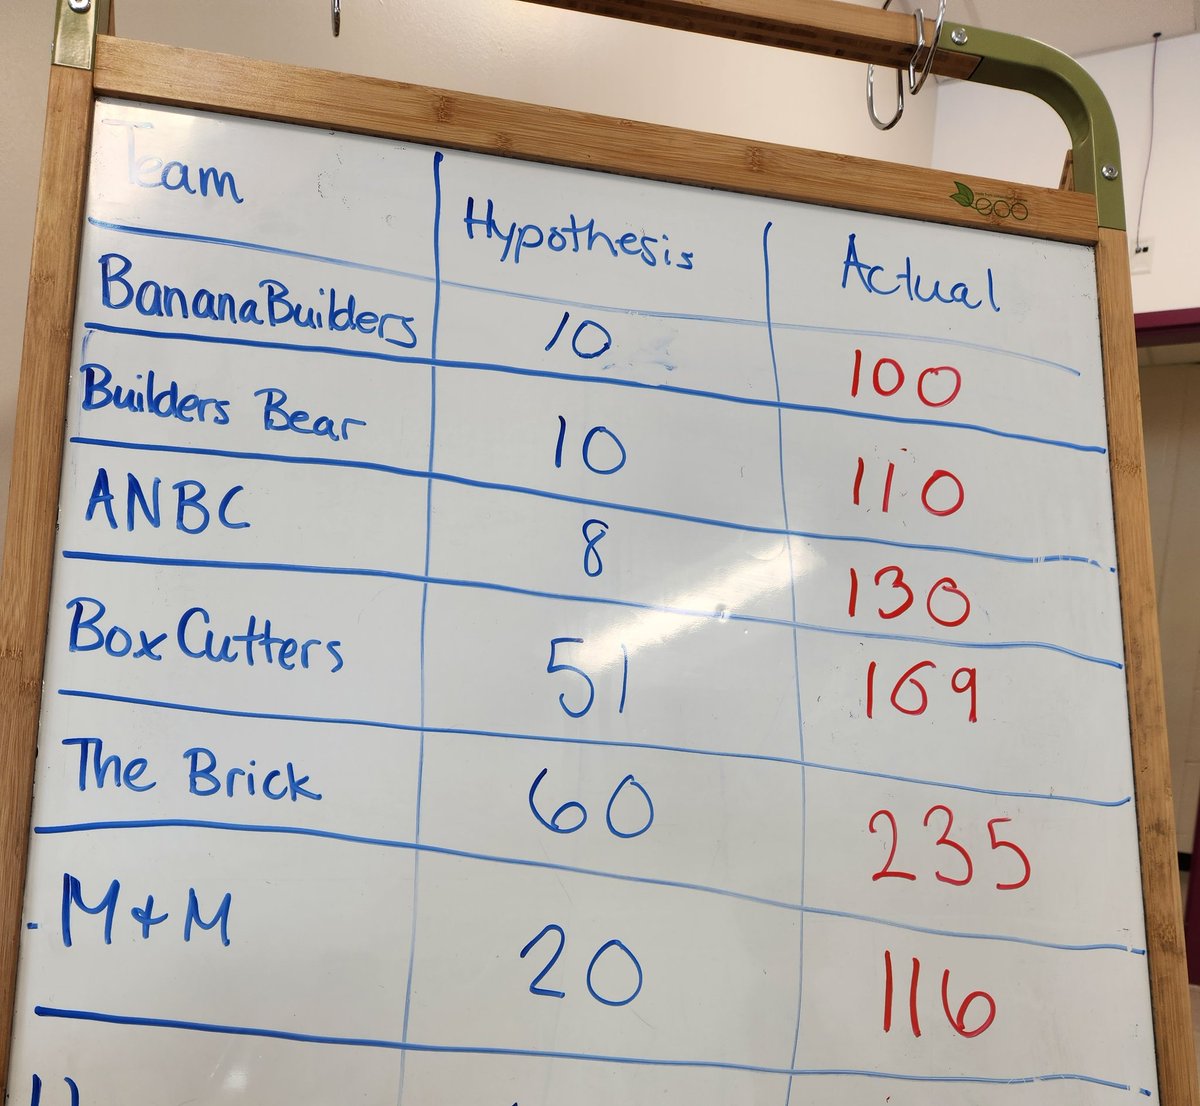 Team Hypothesis Actual
BananaBuilders 10 100
Builders Bear 10 110
ANBC 8 130
Box Cutters 51 169
The Brick 60 235
M & M 20 116
eco